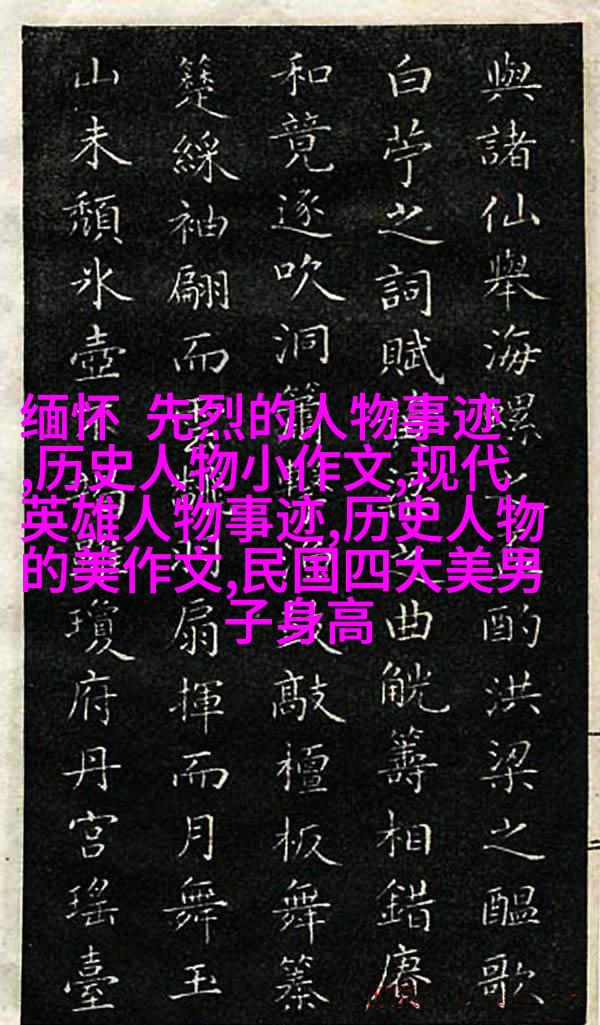 與諸仙舉海螺酌洪梁之醞歌
白苧之詞賦曲觥籌相錯賡
和竟逐吹洞簫敲檀板舞綦
簉綵袖翩而扇揮而月舞玉
山未頹氷壺瓊府丹宮瑤臺
缅怀 先烈的人物事迹
,历史人物小作文,现代
英雄人物事迹,历史人物
的美作文,民国四大美男
子身高